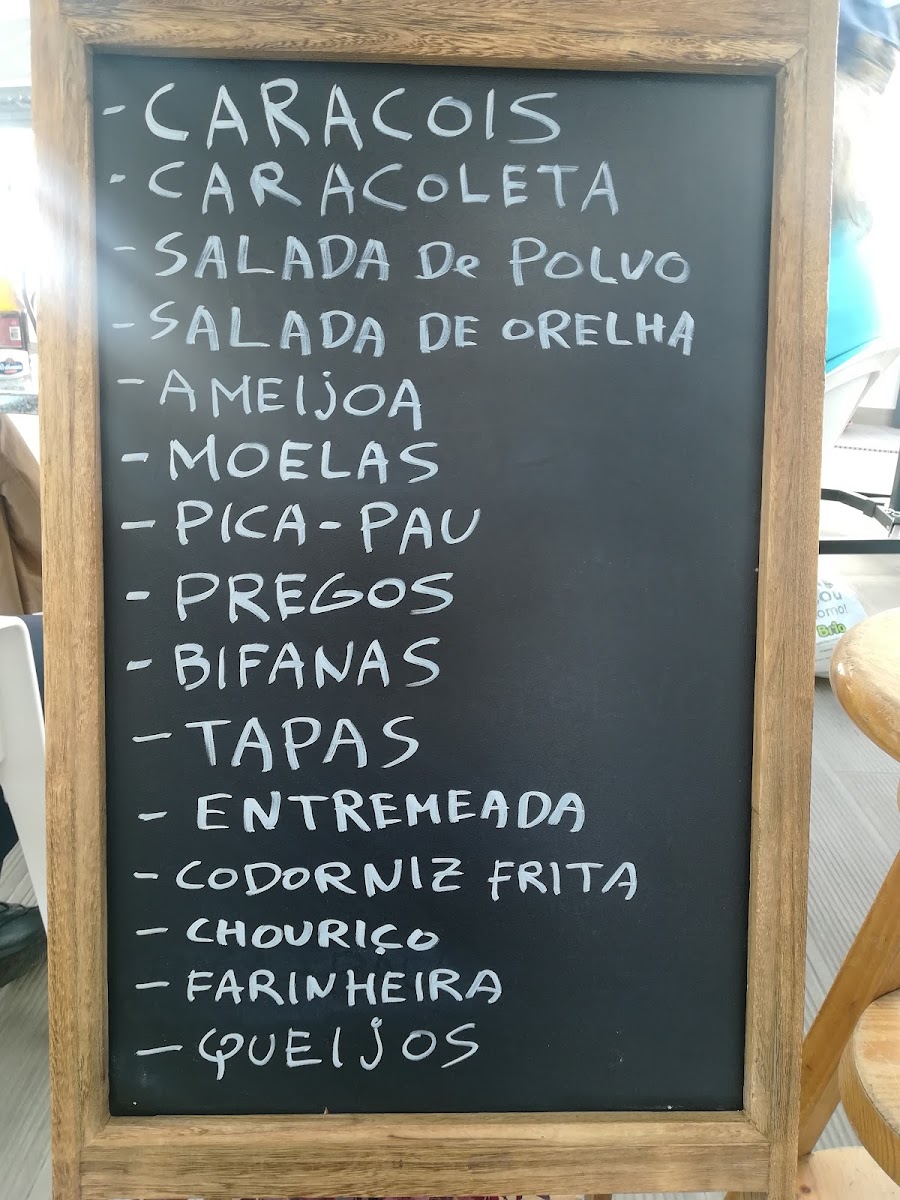 - CARACOIS
- CARACOLETA
- SALADA De POLVO
- SALADA DE ORELHA
- AMEIjOA
- MOELAS
- PICA-PAU
- PREGOS
- BIFANAS
- TAPAS
- ENTREMEADA
- CODORNIZ FRITA
- CHOURIÇO
- FARINHEIRA
- QUEIjOS
Brio